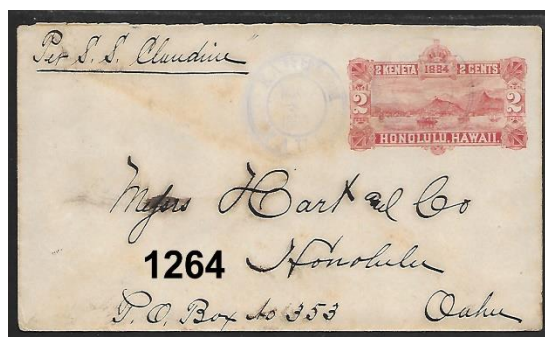 Per S. S. Claudine
2 KENETA 1884 2 CENTS
2 2
HONOLULU, HAWAII.
Messrs Hart and Co
1264
Honolulu
P. O. Box No 353 Oahu